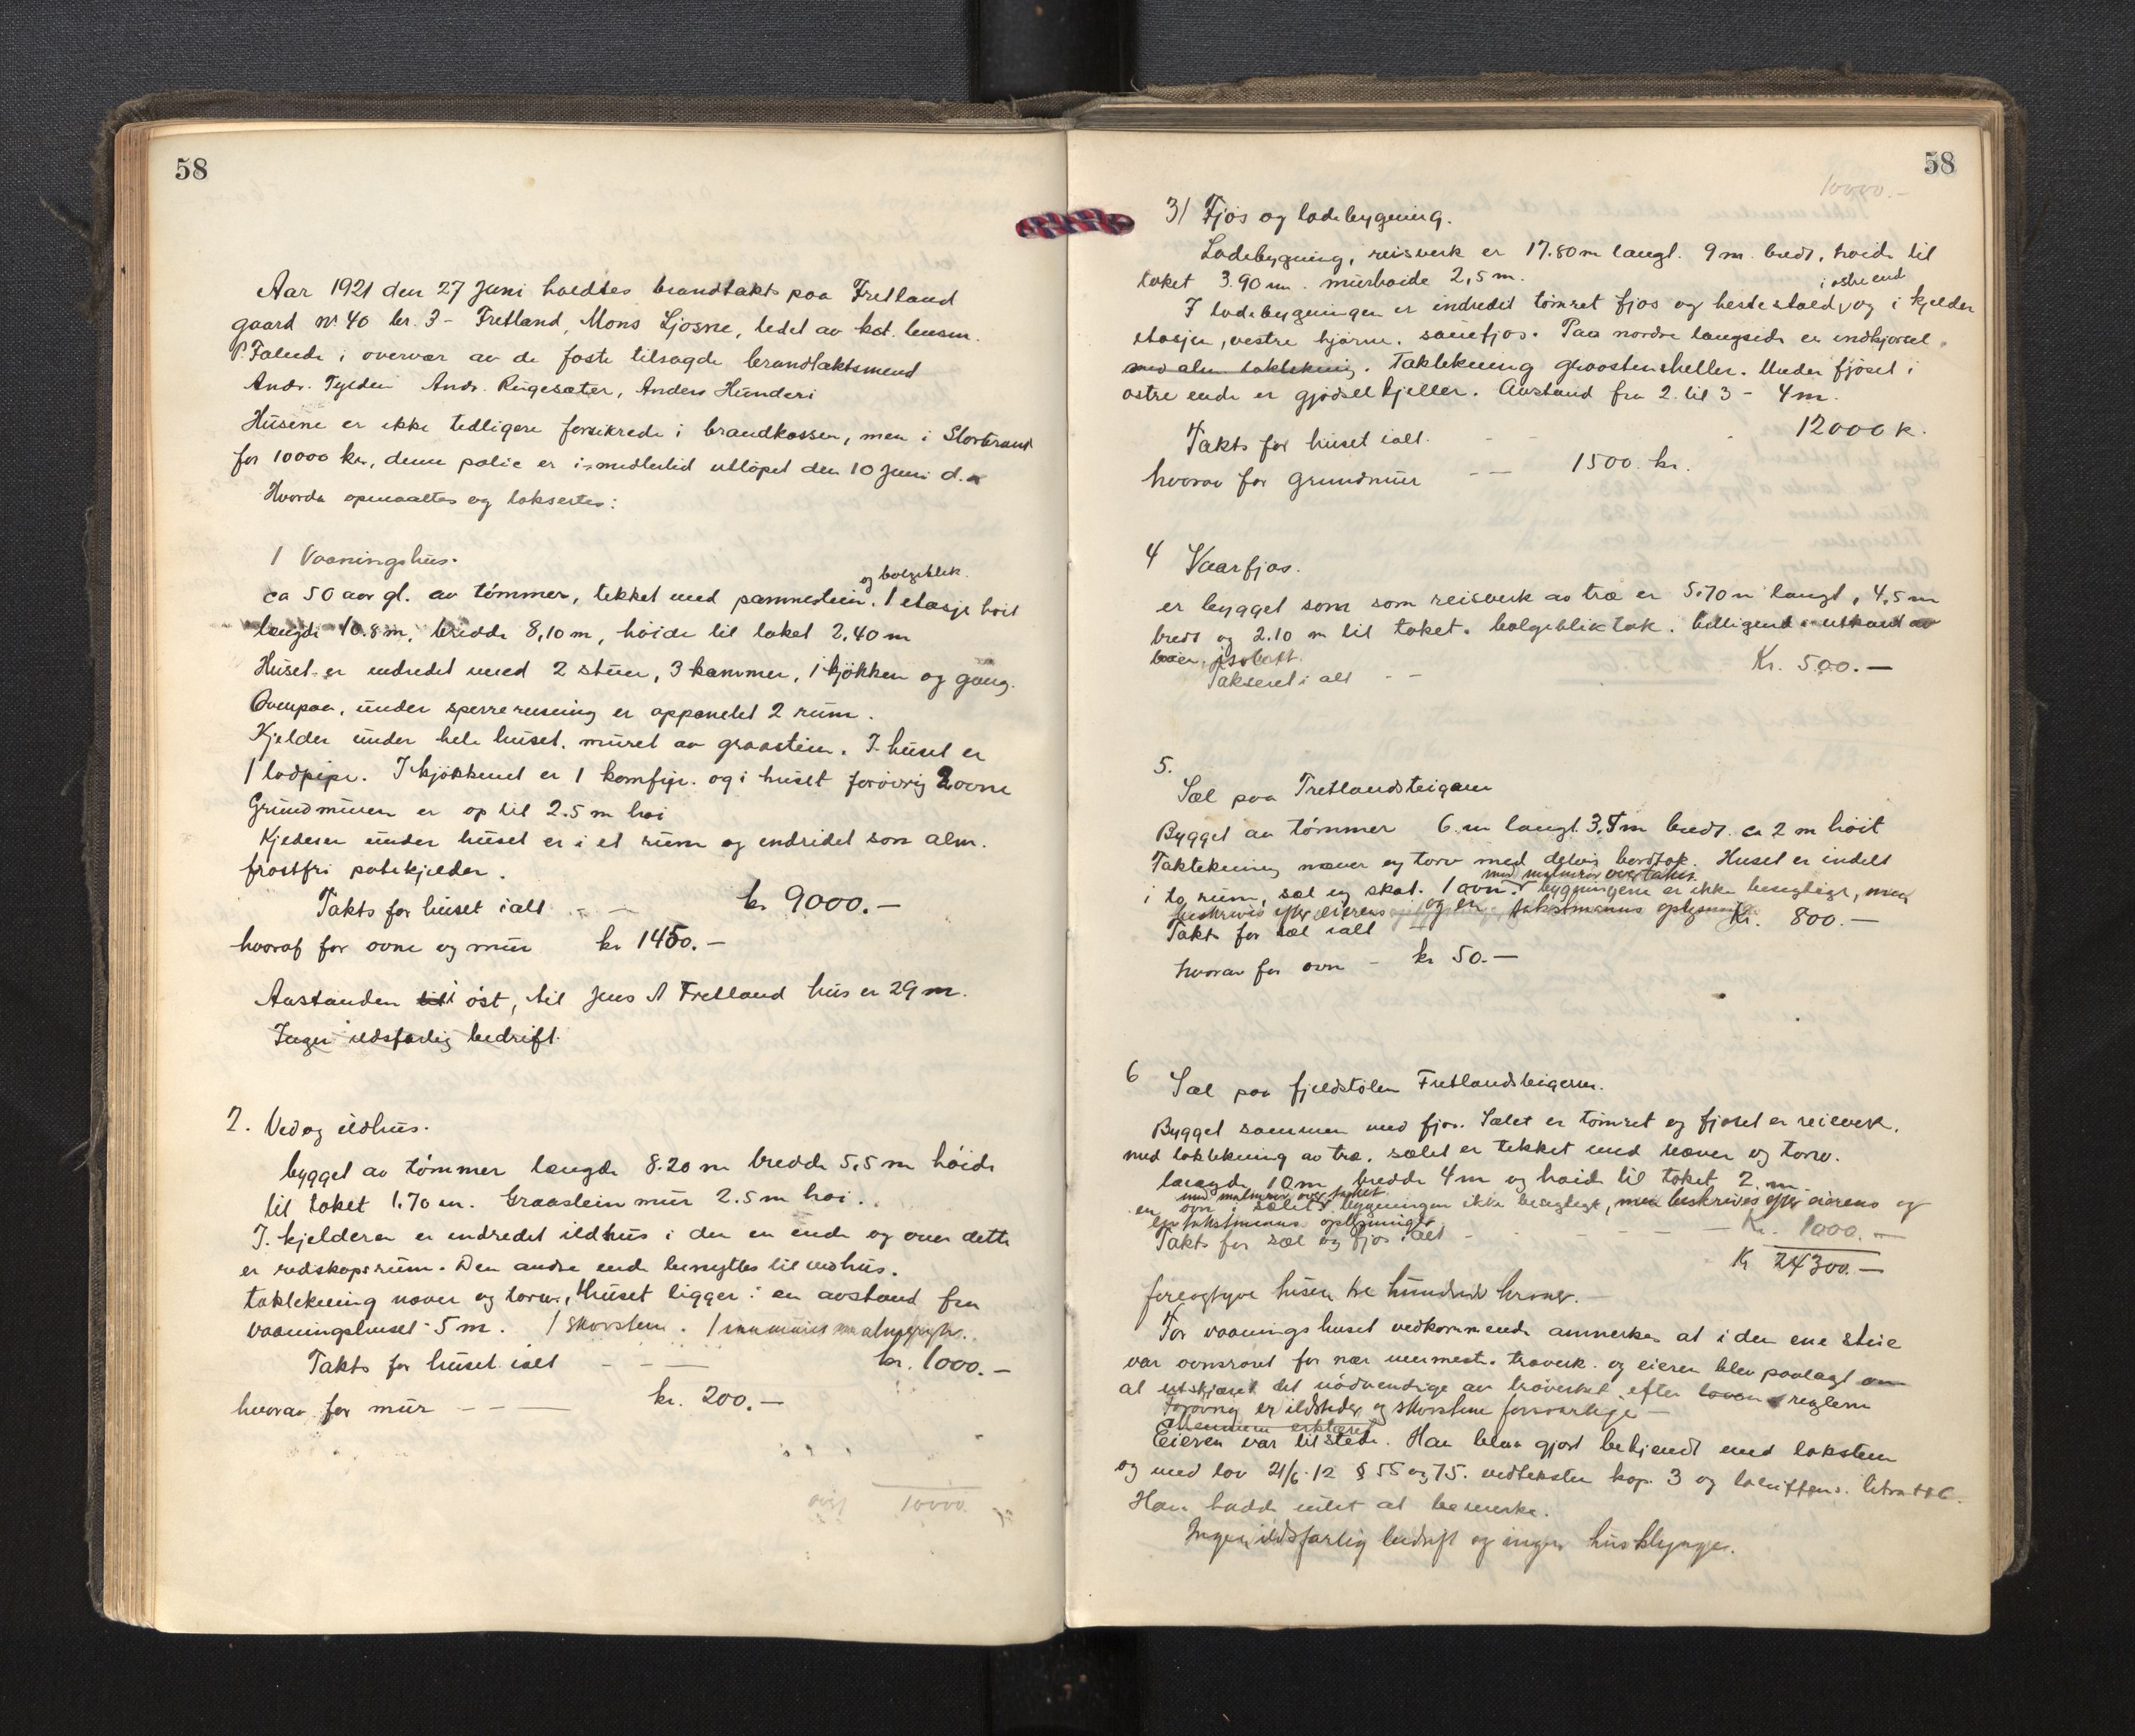 58
Aar 1921 den 27 Juni holdtes brandtakt paa Fretland
gaard nr 40 br. 3 - Fretland, Mons Ljosne, ledet av kst. lensm.
P. Falnede i overvær av de faste tilsagde brandtaktsmend
Andr. Tylden Andr. Rugesæter, Anders Hunderi
Husene er ikke tidligere forsikrede i brandkassen, men i Storbrand
for 10000 kr, denne polic er imidlertid utløpet den 10 Juni d.a
Hvorda opmaaltes og taksertes:
1 Vaaningshus.
og bølgeblik.
ca 50 aar gl. av tømmer, tekket med pannestein. 1 etasje høit
længde 10.8 m, bredde 8,10 m, høide til taket 2,40 m
Huset er indredet med 2 stuer, 3 kammer, 1 kjøkken og gang.
Ovenpaa, under sperrereisning er oppanelet 2 rum.
Kjelder under hele huset, muret av graastein. I huset er
1 lodpipe. I kjøkkenet er 1 komfyr. og i huset forøvrig 2 ovne
Grundmuren er op til 2.5 m høi
Kjederen under huset er i et rum og indredet som alm.
frostfri potetkjelder.
Takts for huset ialt - - kr 9000.-
hvoraf for ovne og mur kr 1450.-
Avstanden til i øst, til Jens A Fretland hus er 29 m.
Ingen ildsfarlig bedrift.
2. Ved og ildhus.
bygget av tømmer længde 8.20 m bredde 5,5 m høide
til taket 1.70 m. Graastein mur 2.5 m høi.
I kjelderen er indredet ildhus i den en ende og over dette
er redskapsrum. Den andre ende benyttes til vedhus.
taktekning næver og torv, Huset ligger i en avstand fra
vaaningshuset 5 m. 1 skorsten. 1 indmuret
Takts for huset ialt - - - kr. 1000.-
hvorav for mur - - - kr. 200.-
10000.
58
10000.-
3) Fjøs og ladebygning.
Ladebygning, reisverk er 17.80 m langt. 9 m. bredt, høide til
taket 3.90 m. murhøide 2,5 m.
i østre end
I ladebygningen er indredet tømret fjøs og hestestald, og i kjelder
etasjen, vestre hjørne, sauefjøs. Paa nordre langside er indkjørsel.
med alm taktekning. Taktekning graastensheller. Under fjøset i
østre ende er gjødselkjeller. Avstand fra 2 til 3 - 4 m.
Takts for huset ialt. - - - 12000 k.
hvorav for grundmur - - 1500. kr.
4 Vaarfjøs.
er bygget som som reisverk av træ er 5.70 m langt, 4,5 m
bredt og 2.10 m til taket. bølgebliktak.
Takseret i alt - - Kr. 500.-
5.
Sæl paa Fretlandsteigen
Bygget av tømmer 6 m langt 3.5 m bredt. ca 2 m høit
Taktekning næver og torv med delvis bordtak. Huset er indelt
med malmrør over taket.
i to rum, sæl og skot. 1 ovn. bygningene er ikke besigtiget, men
beskrives efter eierens og en takstmanns oplysning
Takt for sæl ialt - Kr. 800.-
hvorav for ovn - kr 50.-
6 Sæl paa fjeldstølen Fretlandsteigen.
Bygget sammen med fjøs. Sælet er tømret og fjøset er reisverk.
med taktekning av træ. sælet er tekket med næver og torv.
længde 10 m bredde 4 m og høide til taket 2. m.
med malmrør over taket.
en ovn i sælet. bygningen ikke besigtiget, men beskrives efter eierens og
en takstmanns oplysninger.
Takts for sæl og fjøs ialt - - - Kr. 1000.-
Kr 24300.-
fireogtyve tusen tre hundrede kroner.-
For vaaningshuset vedkommende anmerkes at i den ene stue
var ovnsrøret for nær nærmeste træverk. og eieren blev paalagt om
at utskjære det nødvendige av træverket efter loven reglem
Forøvrig er ildsteder og skorstene forsvarlige -
Eieren var tilstede. Han blev gjort bekjendt med taksten
og med lov 21/6.12 § 55 og 75. vedtekster kap. 3 og tariffens. litra
Han hadde intet at bemerke.
Ingen ildsfarlig bedrift og ingen husklynge.